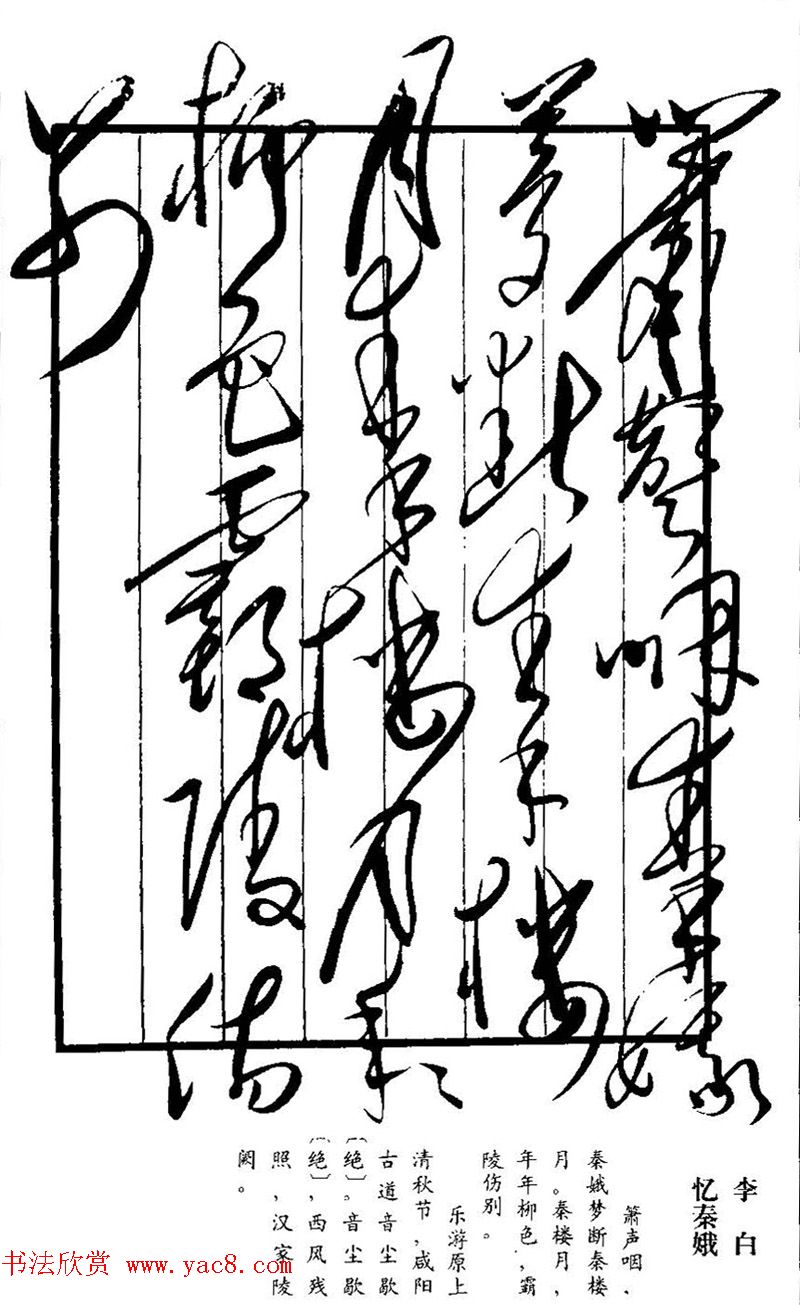 簫聲咽秦娥
夢斷秦樓
月秦樓月年〻
柳色霸陵傷
别
李白
忆秦娥
箫声咽，
秦娥梦断秦楼
月。秦楼月，
年年柳色，霸
陵伤别。
乐游原上
清秋节，咸阳
古道音尘歇
〔绝〕。音尘歇
〔绝〕，西风残
照，汉家陵
阙。
书法欣赏 www.yac8.com